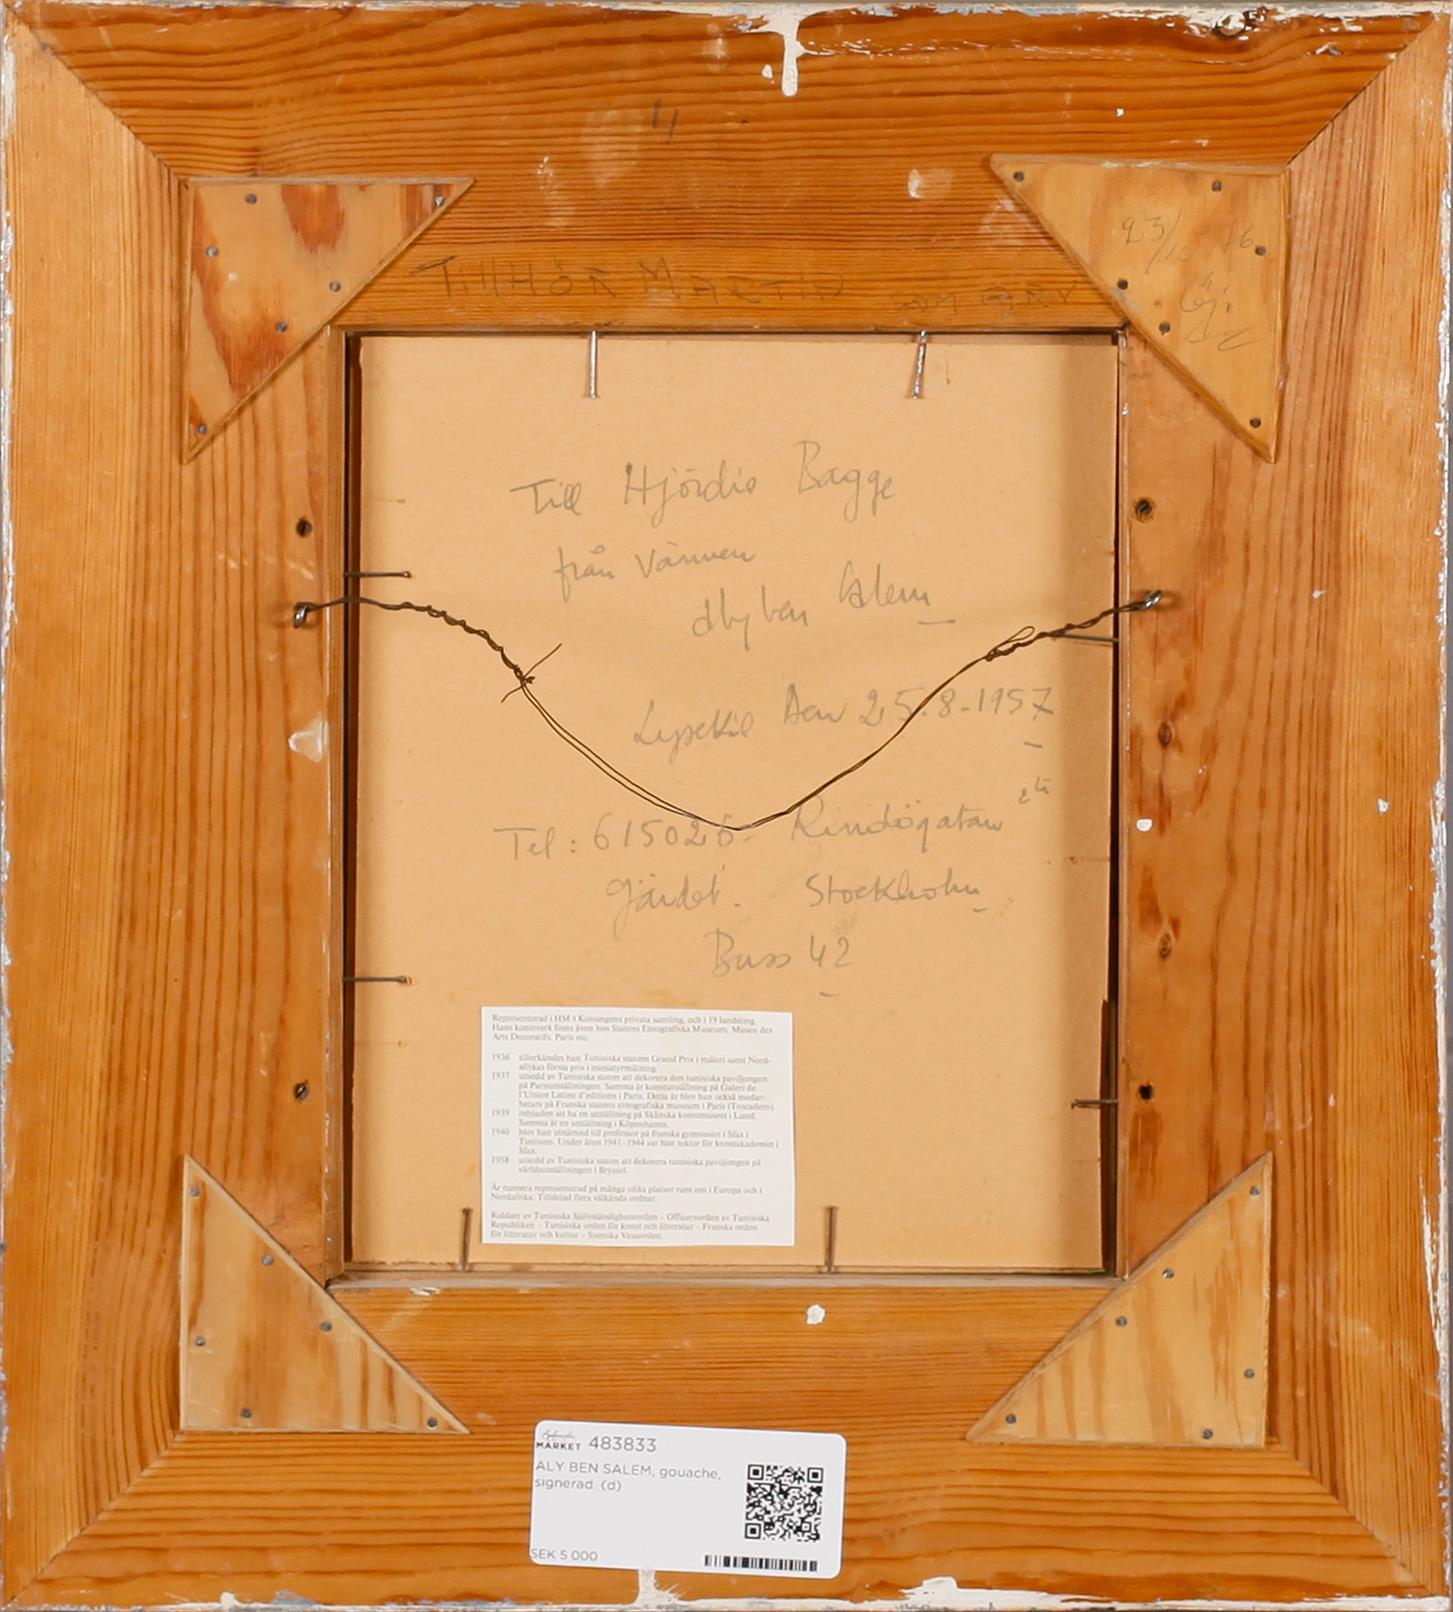 4
TILLHÖR MARTIN
23/12 76
Till Hjördis Bagge
från Vännen
Aly ben Salem
Lysekil den 25.8-1957
Tel: 615026- Rindögatan
Gärdet. Stockholm
Buss 42
Representerad i HM:t Konungens privata samling, och i 19 landsting.
Hans konstverk finns även hos Statens Etnografiska Museum, Musee des
Arts Decoratifs, Paris etc.
1936 tillerkändes han Tunisiska statens Grand Prix i måleri samt Nord-
afrikas första pris i miniatyrmålning.
1937 utsedd av Tunisiska staten att dekorera den tunisiska paviljongen
på Parisutställningen. Samma år konstutställning på Galeri de
l'Union Latine d'editions i Paris. Detta år blev han också medar-
betare på Franska statens etnografiska museum i Paris (Trocadero)
1939 inbjuden att ha en utställning på Skånska konstmuseet i Lund.
Samma år en utställning i Köpenhamn.
1940 blev han utnämnd till professor på franska gymnasiet i Sfax i
Tunisien. Under åren 1941-1944 var han rektor för konstakademin i
Sfax.
1958 utsedd av Tunisiska staten att dekorera tunisiska paviljongen på
världsutställningen i Bryssel.
Är numera representerad på många olika platser runt om i Europa och i
Nordafrika. Tilldelad flera välkända ordnar.
Riddare av Tunisiska Självständighetsorden – Officersorden av Tunisiska
Republiken – Tunisiska orden för konst och litteratur – Franska orden
för litteratur och kultur – Svenska Vasaorden.
MARKET 483833
ALY BEN SALEM, gouache,
signerad. (d)
SEK 5 000